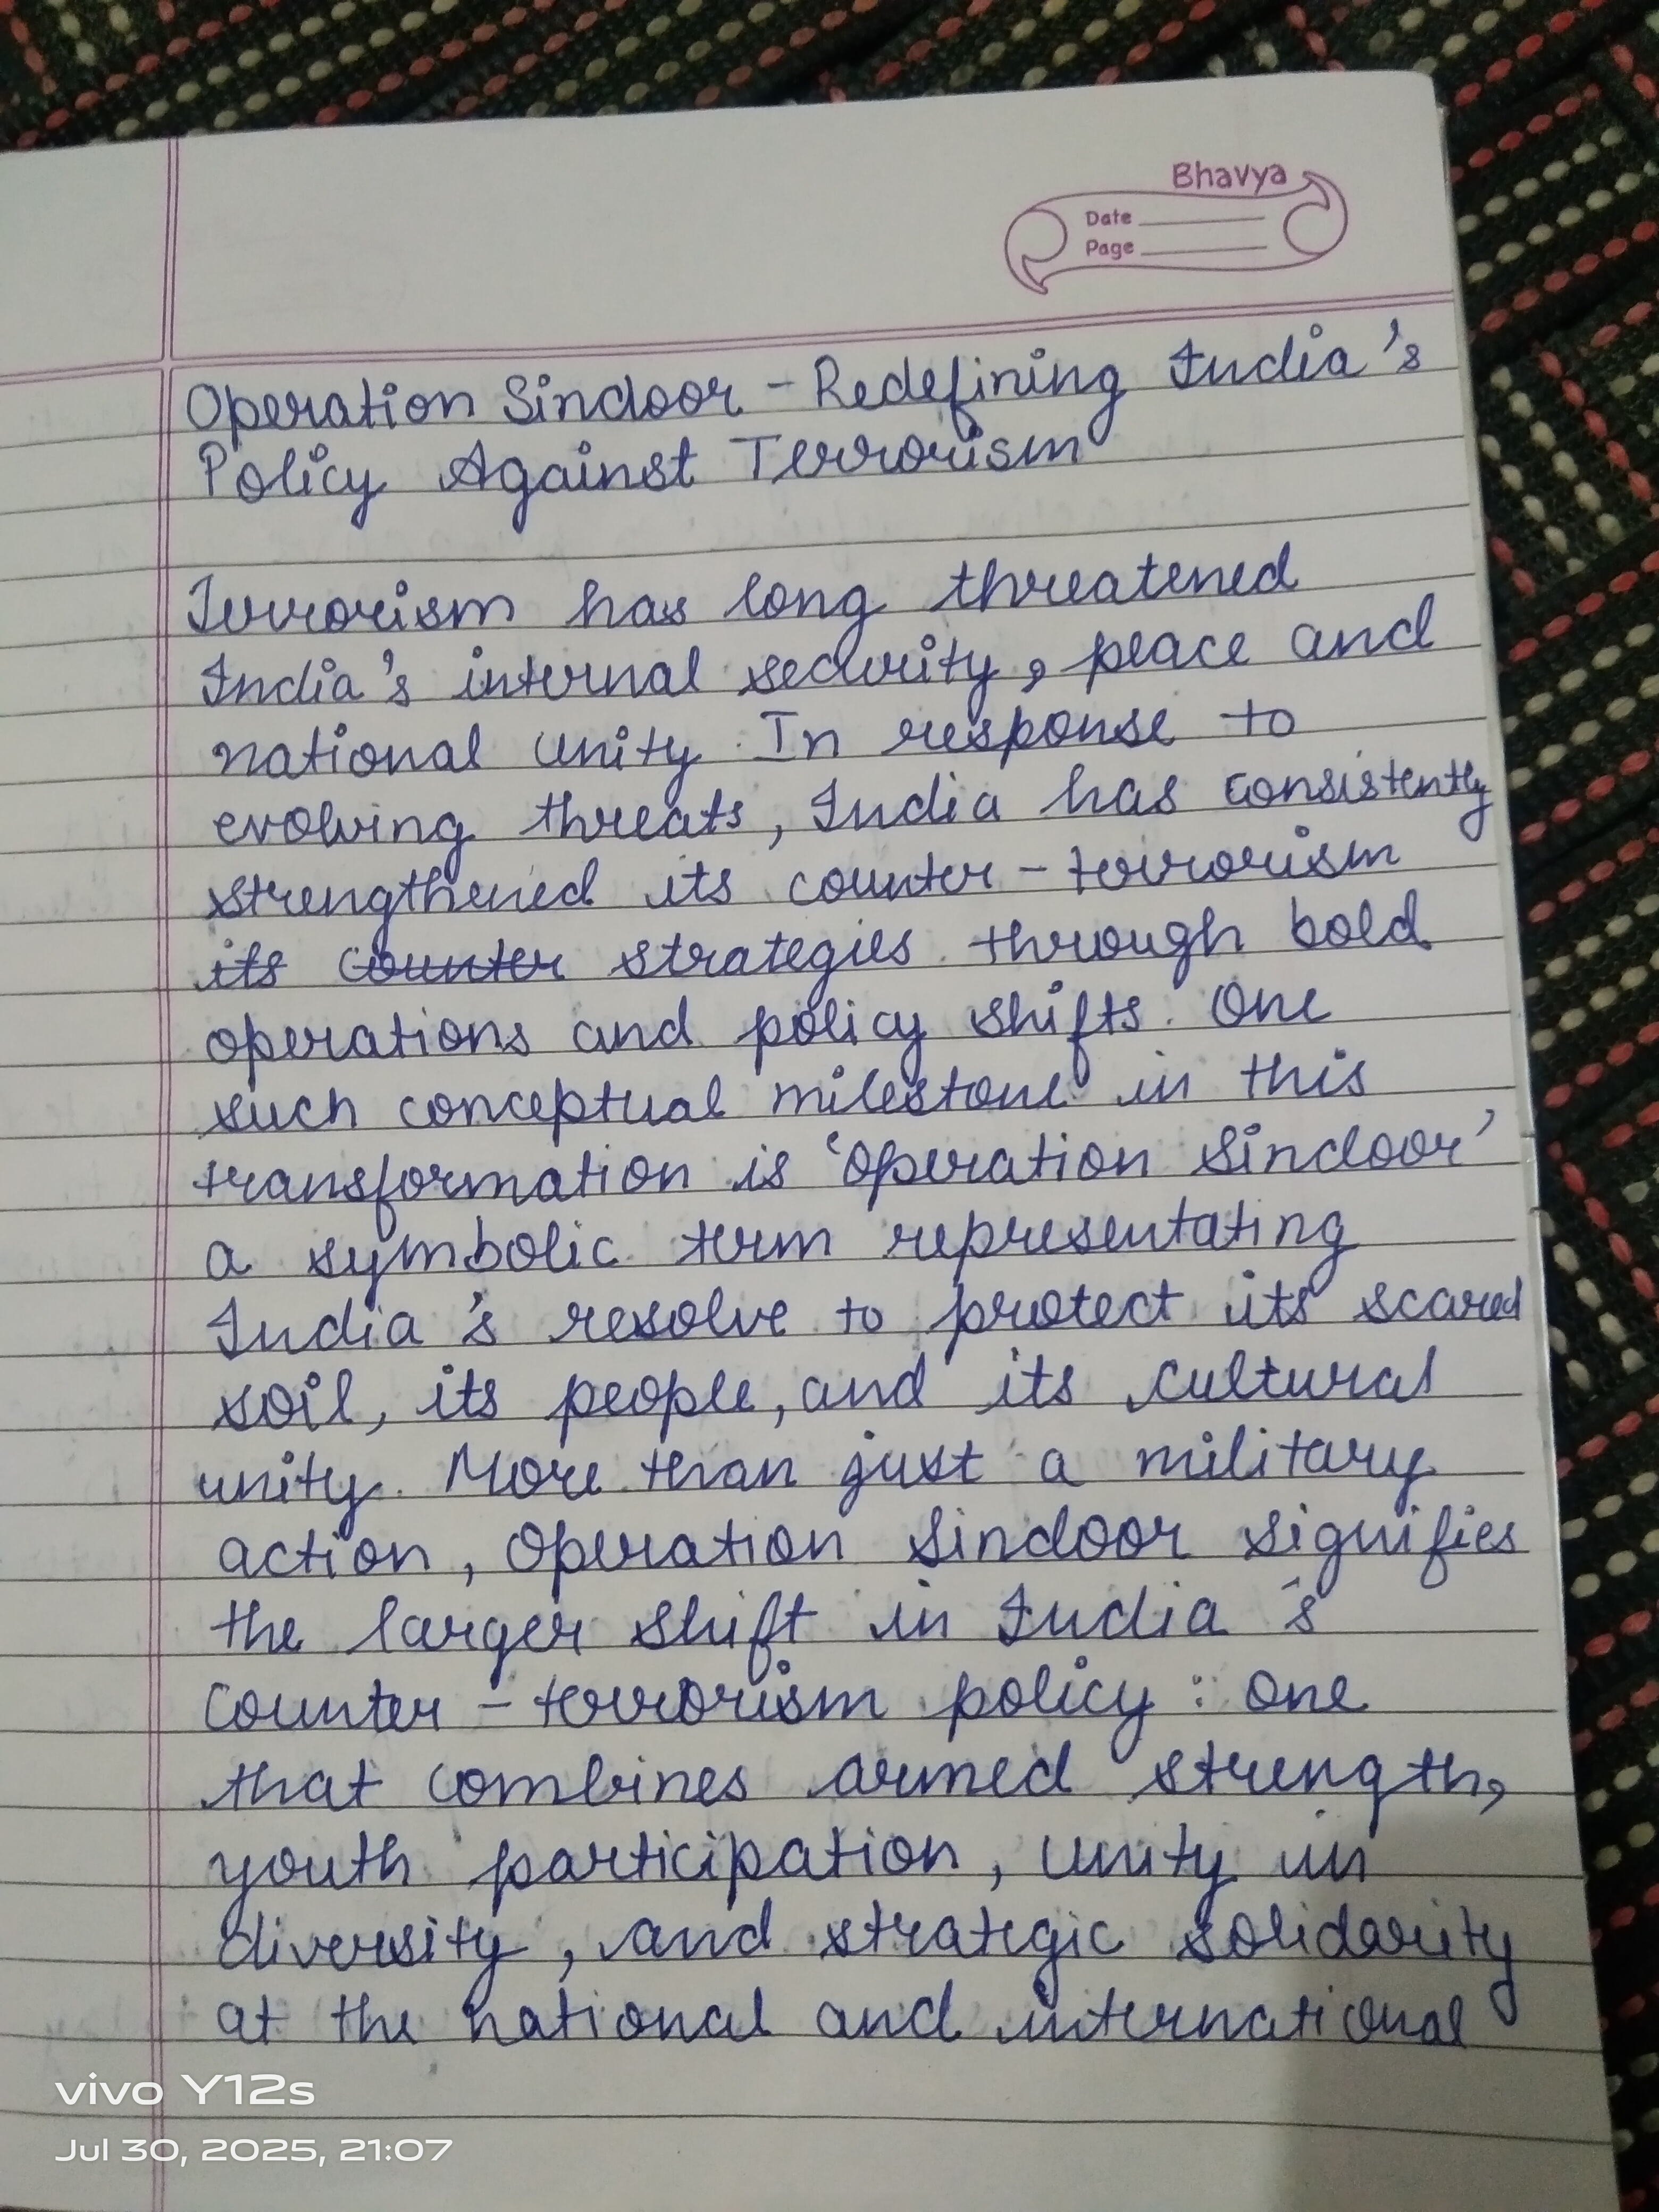 Bhavya
Date
Page
Operation Sindoor - Redefining India's
Policy Against Terrorism
Terrorism has long threatened
India's internal security, peace and
national unity. In response to
evolving threats, India has consistently
strengthened its counter - terrorism
its counter strategies through bold
operations and policy shifts. One
such conceptual milestone in this
transformation is 'Operation Sindoor'
a symbolic term representating
India's resolve to protect its scared
soil, its people, and its cultural
unity. More than just a military
action, Operation Sindoor signifies
the larger shift in India's
counter - terrorism policy : one
that combines armed strength,
youth participation, unity in
diversity, and strategic solidarity
at the national and international
vivo Y12s
Jul 30, 2025, 21:07